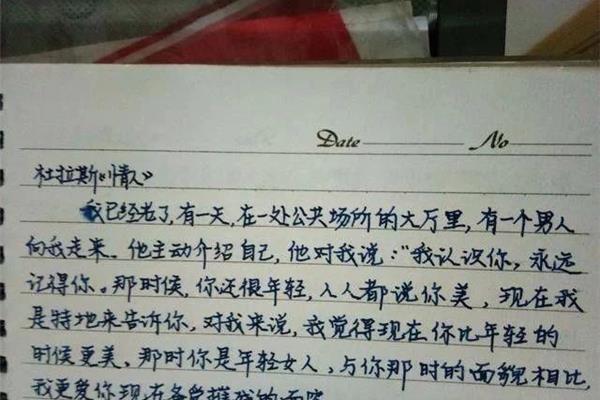 Date No
杜拉斯《情人》
我已经老了,有一天,在一处公共场所的大厅里,有一个男人
向我走来。他主动介绍自己,他对我说:“我认识你,永远
记得你。那时候,你还很年轻,人人都说你美,现在我
是特地来告诉你,对我来说,我觉得现在你比年轻的
时候更美,那时你是年轻女人,与你那时的面貌相比,
我更爱你现在备受摧残的面容